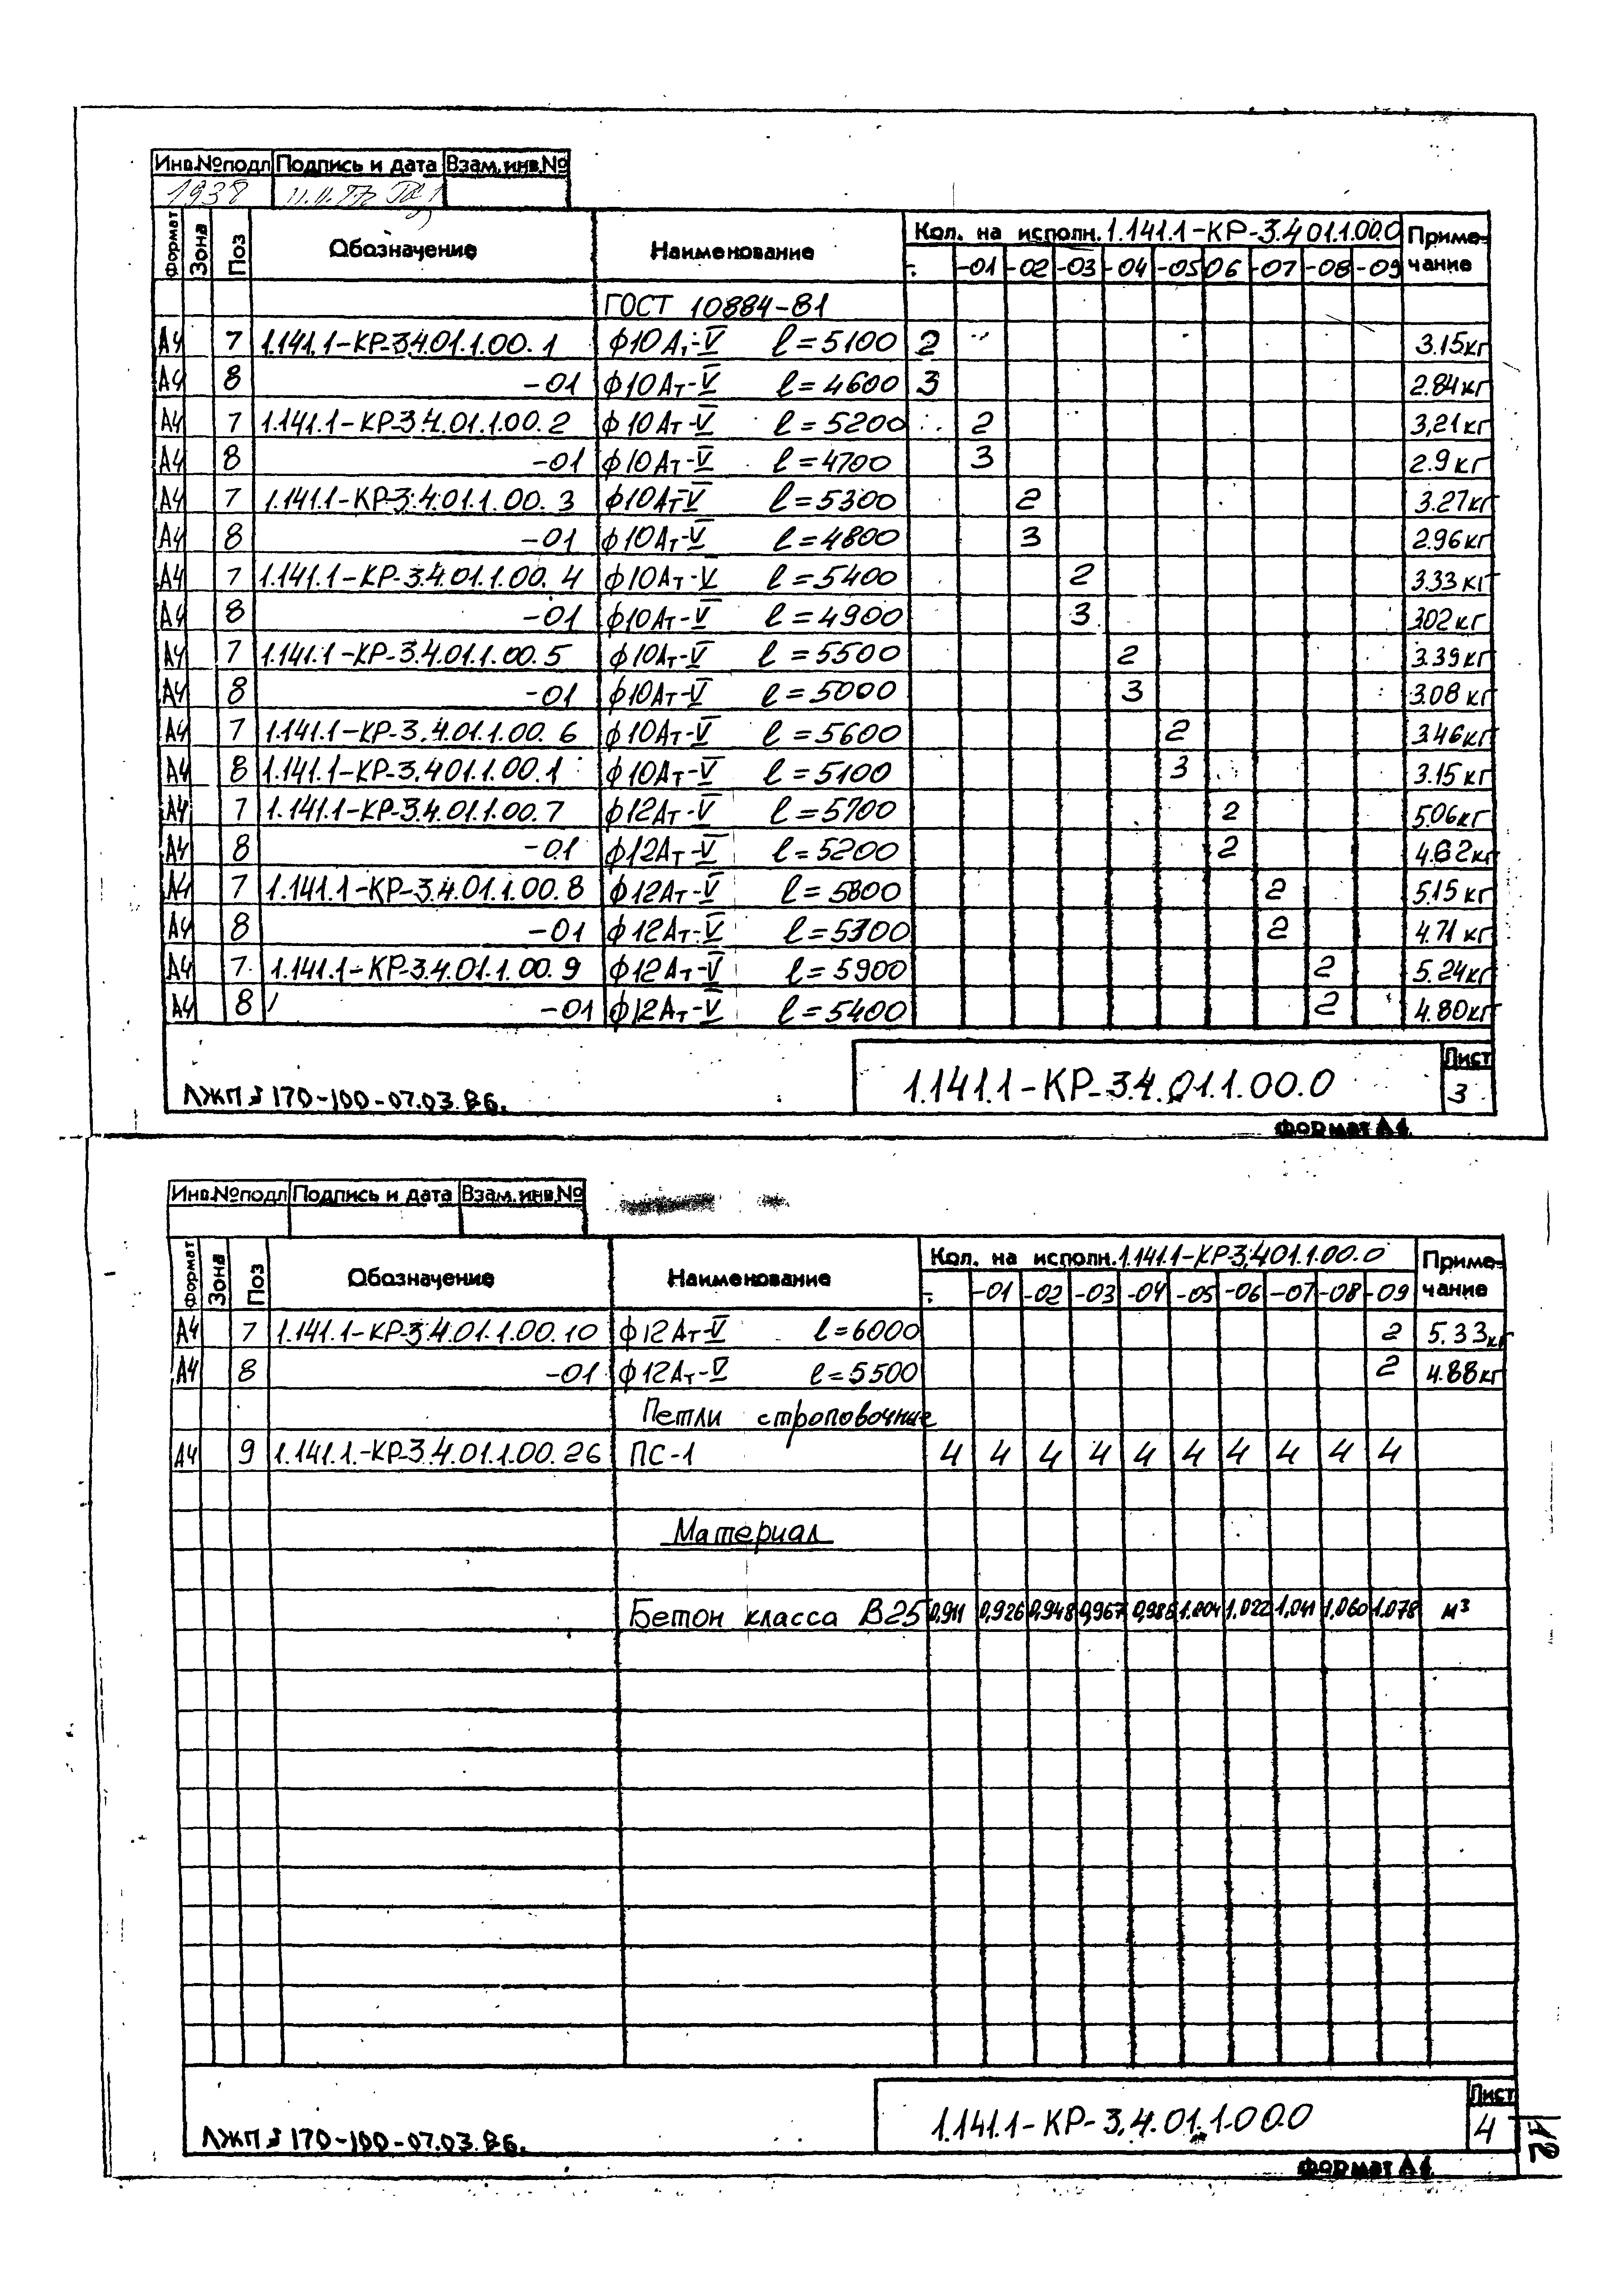 Инв.№подл Подпись и дата Взам.инв.№
1938
Формат Зона Поз Обозначение Наименование Кол. на исполн. 1.141.1-КР-3.4.01.1.00.0 Приме-
- -01 -02 -03 -04 -05 06 -07 -08 -09 чание
ГОСТ 10884-81
А4 7 1.141.1-КР-3.4.01.1.00.1 ф10Ат-V l=5100 2 3.15кг
А4 8 -01 ф10Ат-V l=4600 3 2.84кг
А4 7 1.141.1-КР-3.4.01.1.00.2 ф10Ат-V l=5200 2 3,21кг
А4 8 -01 ф10Ат-V l=4700 3 2.9кг
А4 7 1.141.1-КР-3.4.01.1.00.3 ф10Ат-V l=5300 2 3.27кг
А4 8 -01 ф10Ат-V l=4800 3 2.96кг
А4 7 1.141.1-КР-3.4.01.1.00.4 ф10Ат-V l=5400 2 3.33кг
А4 8 -01 ф10Ат-V l=4900 3 302кг
А4 7 1.141.1-КР-3.4.01.1.00.5 ф10Ат-V l=5500 2 3.39кг
А4 8 -01 ф10Ат-V l=5000 3 3.08кг
А4 7 1.141.1-КР-3.4.01.1.00.6 ф10Ат-V l=5600 2 3.46кг
А4 8 1.141.1-КР-3.4.01.1.00.1 ф10Ат-V l=5100 3 3.15кг
А4 7 1.141.1-КР-3.4.01.1.00.7 ф12Ат-V l=5700 2 5.06кг
А4 8 -01 ф12Ат-V l=5200 2 4.62кг
А4 7 1.141.1-КР-3.4.01.1.00.8 ф12Ат-V l=5800 2 5.15кг
А4 8 -01 ф12Ат-V l=5300 2 4.71кг
А4 7 1.141.1-КР-3.4.01.1.00.9 ф12Ат-V l=5900 2 5.24кг
А4 8 -01 ф12Ат-V l=5400 2 4.80кг
1.141.1-КР-3.4.01.1.00.0 Лист
3
ЛЖПЗ 170-100-07.03.86.
Формат А4
Инв.№подл Подпись и дата Взам.инв.№
Формат Зона Поз Обозначение Наименование Кол. на исполн. 1.141.1-КР-3.4.01.1.00.0 Приме-
- -01 -02 -03 -04 -05 -06 -07 -08 -09 чание
А4 7 1.141.1-КР-3.4.01.1.00.10 ф12Ат-V l=6000 2 5.33кг
А4 8 -01 ф12Ат-V l=5500 2 4.88кг
Петли строповочные
А4 9 1.141.1-КР-3.4.01.1.00.26 ПС-1 4 4 4 4 4 4 4 4 4 4
Материал
Бетон класса В25 0,911 0,926 0,948 0,967 0,986 1.004 1.022 1,041 1,060 1.078 м³
1.141.1-КР-3.4.01.1.00.0 Лист
4
ЛЖПЗ 170-100-07.03.86.
Формат А4
12